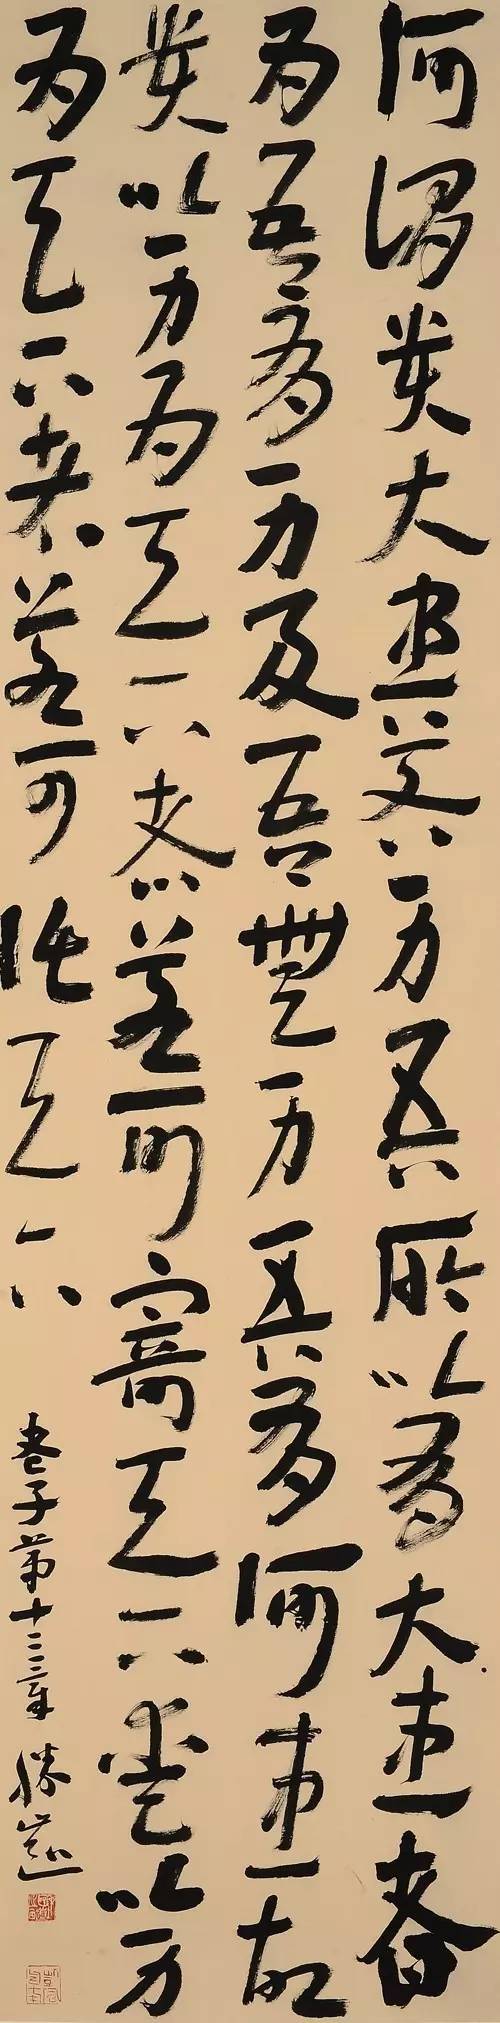 何謂貴大患若身吾所以有大患者
为吾有身及吾無身吾有何患故
貴以身为天下者若可寄天下愛以身
为天下者若可託天下
老子第十三章